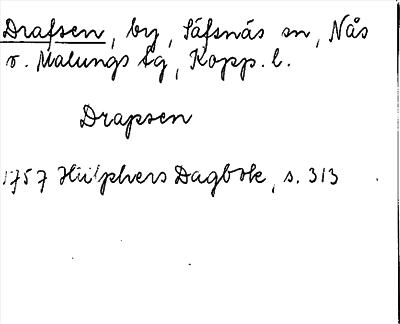 Drafsen, by, Säfsnäs sn, Nås
o. Malungs tg, Kopp. l.
Drapsen
1757 Hülphers Dagbok, s. 313